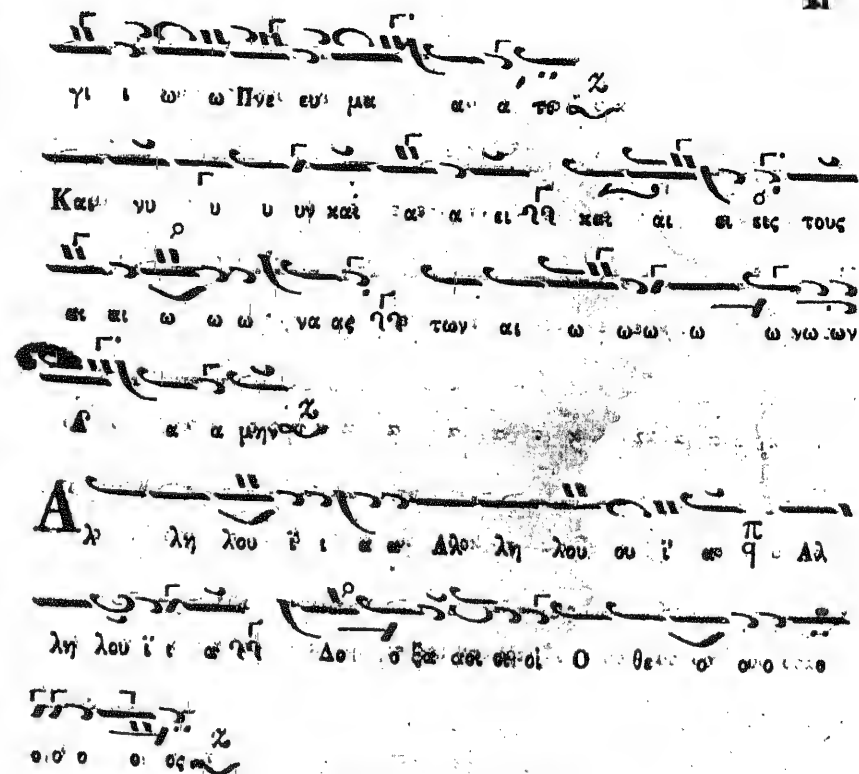 γι ι ω ω Πνε ευ μα α α τι
Και νυ υ υ υν και α α ει και αι ει εις τους
αι αι ω ω ω να ας των αι ω ω ω ω ω νω ων
Α α α μην
Αλ λη λου ϊ ι α α Αλ λη λου ου ϊ α π q Αλ
λη λου ϊ ι α Δο ο ξα α σοι οι Ο θε ο ο ο ο
ο ο ο ο ος